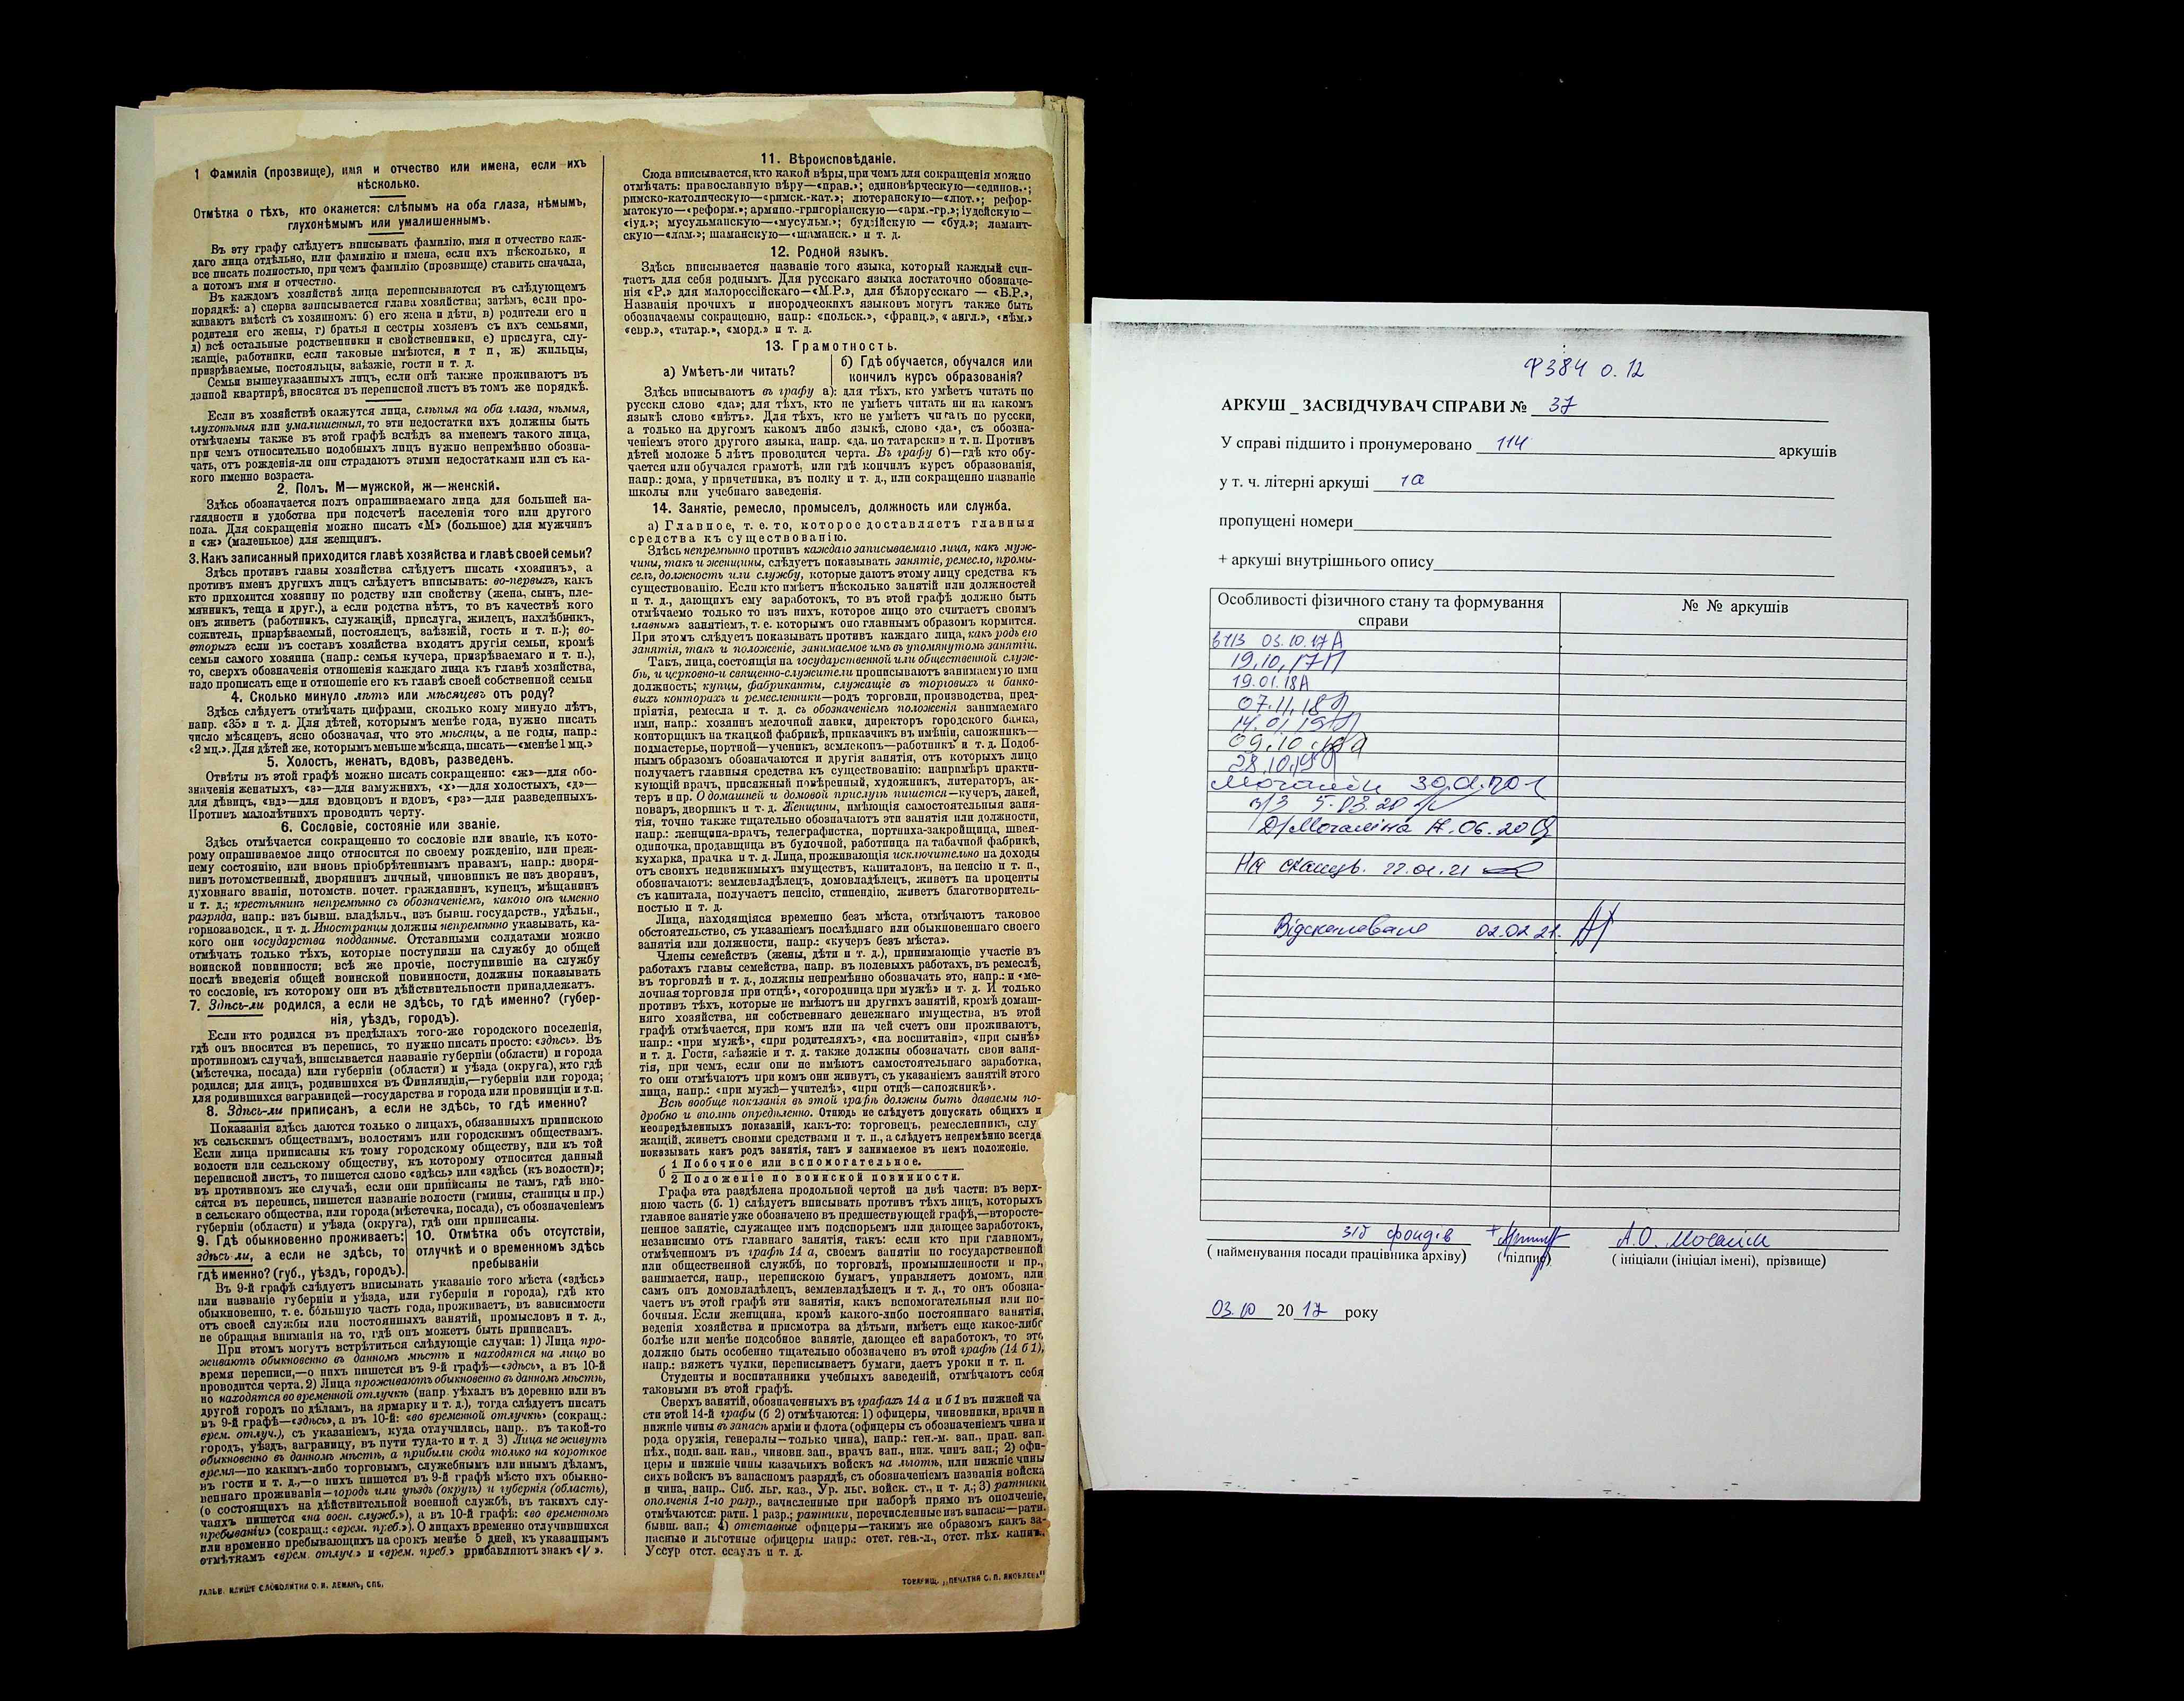 1 Фамилія (прозвище), имя и отчество или имена, если ихъ
нѣсколько.
Отмѣтка о тѣхъ, кто окажется: слѣпымъ на оба глаза, нѣмымъ,
глухонѣмымъ или умалишеннымъ.
Въ эту графу слѣдуетъ вписывать фамилію, имя и отчество каж-
даго лица отдѣльно, или фамилію и имена, если ихъ нѣсколько, и
все писать полностью, при чемъ фамилію (прозвище) ставить сначала,
а потомъ имя и отчество.
Въ каждомъ хозяйствѣ лица переписываются въ слѣдующемъ
порядкѣ: а) сперва записывается глава хозяйства; затѣмъ, если про-
живаютъ вмѣстѣ съ хозяиномъ: б) его жена и дѣти, в) родители его и
родители его жены, г) братья и сестры хозяевъ съ ихъ семьями,
д) всѣ остальные родственники и свойственники, е) прислуга, слу-
жащіе, работники, если таковые имѣются, и т п, ж) жильцы,
призрѣваемые, постояльцы, заѣзжіе, гости и т. д.
Семьи вышеуказанныхъ лицъ, если онѣ также проживаютъ въ
данной квартирѣ, вносятся въ переписной листъ въ томъ же порядкѣ.
Если въ хозяйствѣ окажутся лица, слѣпыя на оба глаза, нѣмыя,
глухонѣмыя или умалишенныя, то эти недостатки ихъ должны быть
отмѣчаемы также въ этой графѣ вслѣдъ за именемъ такого лица,
при чемъ относительно подобныхъ лицъ нужно непремѣнно обозна-
чать, отъ рожденія-ли они страдаютъ этими недостатками или съ ка-
кого именно возраста.
2. Полъ. М—мужской, ж—женскій.
Здѣсь обозначается полъ опрашиваемаго лица для большей на-
глядности и удобства при подсчетѣ населенія того или другого
пола. Для сокращенія можно писать «М» (большое) для мужчинъ
и «ж» (маленькое) для женщинъ.
3. Какъ записанный приходится главѣ хозяйства и главѣ своей семьи?
Здѣсь противъ главы хозяйства слѣдуетъ писать «хозяинъ», а
противъ именъ другихъ лицъ слѣдуетъ вписывать: во-первыхъ, какъ
кто приходится хозяину по родству или свойству (жена, сынъ, пле-
мянникъ, теща и друг.), а если родства нѣтъ, то въ качествѣ кого
онъ живетъ (работникъ, служащій, прислуга, жилецъ, нахлѣбникъ,
сожитель, призрѣваемый, постоялецъ, заѣзжій, гость и т. п.); во-
вторыхъ если въ составъ хозяйства входятъ другія семьи, кромѣ
семьи самого хозяина (напр.: семья кучера, призрѣваемаго и т. п.),
то, сверхъ обозначенія отношенія каждаго лица къ главѣ хозяйства,
надо прописать еще и отношеніе его къ главѣ своей собственной семьи
4. Сколько минуло лѣтъ или мѣсяцевъ отъ роду?
Здѣсь слѣдуетъ отмѣчать цифрами, сколько кому минуло лѣтъ,
напр. «35» и т. д. Для дѣтей, которымъ менѣе года, нужно писать
число мѣсяцевъ, ясно обозначая, что это мѣсяцы, а не годы, напр.:
«2 мц.». Для дѣтей же, которымъ меньше мѣсяца, писать—«менѣе 1 мц.»
5. Холостъ, женатъ, вдовъ, разведенъ.
Отвѣты въ этой графѣ можно писать сокращенно: «ж»—для обо-
значенія женатыхъ, «з»—для замужнихъ, «х»—для холостыхъ, «д»—
для дѣвицъ, «вд»—для вдовцовъ и вдовъ, «рз»—для разведенныхъ.
Противъ малолѣтнихъ проводить черту.
6. Сословіе, состояніе или званіе.
Здѣсь отмѣчается сокращенно то сословіе или званіе, къ кото-
рому опрашиваемое лицо относится по своему рожденію, или преж-
нему состоянію, или вновь пріобрѣтеннымъ правамъ, напр.: дворя-
нинъ потомственный, дворянинъ личный, чиновникъ не изъ дворянъ,
духовнаго званія, потомств. почет. гражданинъ, купецъ, мѣщанинъ
и т. д.; крестьянинъ непремѣнно съ обозначеніемъ, какого онъ именно
разряда, напр.: изъ бывш. владѣльч., изъ бывш. государств., удѣльн.,
горнозаводск., и т. д. Иностранцы должны непремѣнно указывать, ка-
кого они государства подданные. Отставными солдатами можно
отмѣчать только тѣхъ, которые поступили на службу до общей
воинской повинности; всѣ же прочіе, поступившіе на службу
послѣ введенія общей воинской повинности, должны показывать
то сословіе, къ которому они въ дѣйствительности принадлежатъ.
7. Здѣсь-ли родился, а если не здѣсь, то гдѣ именно? (губер-
нія, уѣздъ, городъ).
Если кто родился въ предѣлахъ того-же городского поселенія,
гдѣ онъ вносится въ перепись, то нужно писать просто: «здѣсь». Въ
противномъ случаѣ, вписывается названіе губерніи (области) и города
(мѣстечка, посада) или губерніи (области) и уѣзда (округа), кто гдѣ
родился; для лицъ, родившихся въ Финляндіи,—губерніи или города;
для родившихся заграницей—государства и города или провинціи и т.п.
8. Здѣсь-ли приписанъ, а если не здѣсь, то гдѣ именно?
Показанія здѣсь даются только о лицахъ, обязанныхъ припискою
къ сельскимъ обществамъ, волостямъ или городскимъ обществамъ.
Если лица приписаны къ тому городскому обществу, или къ той
волости или сельскому обществу, къ которому относится данный
переписной листъ, то пишется слово «здѣсь» или «здѣсь (къ волости)»;
въ противномъ же случаѣ, если они приписаны не тамъ, гдѣ вно-
сятся въ перепись, пишется названіе волости (гмины, станицы и пр.)
и сельскаго общества, или города (мѣстечка, посада), съ обозначеніемъ
губерніи (области) и уѣзда (округа), гдѣ они приписаны.
9. Гдѣ обыкновенно проживаетъ:
здѣсь-ли, а если не здѣсь, то
гдѣ именно? (губ., уѣздъ, городъ).
10. Отмѣтка объ отсутствіи,
отлучкѣ и о временномъ здѣсь
пребываніи
Въ 9-й графѣ слѣдуетъ вписывать указаніе того мѣста («здѣсь»
или названіе губерніи и уѣзда, или губерніи и города), гдѣ кто
обыкновенно, т. е. большую часть года, проживаетъ, въ зависимости
отъ своей службы или постоянныхъ занятій, промысловъ и т. д.,
не обращая вниманія на то, гдѣ онъ можетъ быть приписанъ.
При этомъ могутъ встрѣтиться слѣдующіе случаи: 1) Лица про-
живаютъ обыкновенно въ данномъ мѣстѣ и находятся на лицо во
время переписи,—о нихъ пишется въ 9-й графѣ—«здѣсь», а въ 10-й
проводится черта. 2) Лица проживаютъ обыкновенно въ данномъ мѣстѣ,
но находятся во временной отлучкѣ (напр уѣхалъ въ деревню или въ
другой городъ по дѣламъ, на ярмарку и т. д.), тогда слѣдуетъ писать
въ 9-й графѣ—«здѣсь», а въ 10-й: «во временной отлучкѣ» (сокращ.:
врем. отлуч.), съ указаніемъ, куда отлучились, напр.. въ такой-то
городъ, уѣздъ, заграницу, въ пути туда-то и т. д 3) Лица не живутъ
обыкновенно въ данномъ мѣстѣ, а прибыли сюда только на короткое
время—по какимъ-либо торговымъ, служебнымъ или инымъ дѣламъ,
въ гости и т. д.,—о нихъ пишется въ 9-й графѣ мѣсто ихъ обыкно-
веннаго проживанія—городъ или уѣздъ (округъ) и губернія (область),
(о состоящихъ на дѣйствительной военной службѣ, въ такихъ слу-
чаяхъ пишется «на воен. служб.»), а въ 10-й графѣ: «во временномъ
пребываніи» (сокращ.: «врем. преб.»). О лицахъ временно отлучившихся
или временно пребывающихъ на срокъ менѣе 5 дней, къ указаннымъ
отмѣткамъ «врем. отлуч.» и «врем. преб.» прибавляютъ знакъ «V».
О. И. ЛЕМАНЪ, СПБ.
11. Вѣроисповѣданіе.
Сюда вписывается, кто какой вѣры, при чемъ для сокращенія можно
отмѣчать: православную вѣру—«прав.»; единовѣрческую—«единов.»;
римско-католическую—«римск.-кат.»; лютеранскую—«лют.»; рефор-
матскую—«реформ.»; армяно.-григоріанскую—«арм.-гр.»; іудейскую —
«іуд.»; мусульманскую—«мусульм.»; буддійскую — «буд.»; ламаит-
скую—«лам.»; шаманскую—«шаманск.» и т. д.
12. Родной языкъ.
Здѣсь вписывается названіе того языка, который каждый счи-
таетъ для себя роднымъ. Для русскаго языка достаточно обозначе-
нія «Р.» для малороссійскаго—«М.Р.», для бѣлорусскаго — «Б.Р.»,
Названія прочихъ и инородческихъ языковъ могутъ также быть
обозначаемы сокращенно, напр.: «польск.», «франц.», « англ.», «нѣм.»
«евр.», «татар.», «морд.» и т. д.
13. Грамотность.
а) Умѣетъ-ли читать?
б) Гдѣ обучается, обучался или
кончилъ курсъ образованія?
Здѣсь вписываютъ въ графу а): для тѣхъ, кто умѣетъ читать по
русски слово «да»; для тѣхъ, кто не умѣетъ читать ни на какомъ
языкѣ слово «нѣтъ». Для тѣхъ, кто не умѣетъ читать по русски,
а только на другомъ какомъ либо языкѣ, слово «да», съ обозна-
ченіемъ этого другого языка, напр. «да, по татарски» и т. п. Противъ
дѣтей моложе 5 лѣтъ проводится черта. Въ графу б)—гдѣ кто обу-
чается или обучался грамотѣ, или гдѣ кончилъ курсъ образованія,
напр.: дома, у причетника, въ полку и т. д., или сокращенно названіе
школы или учебнаго заведенія.
14. Занятіе, ремесло, промыселъ, должность или служба.
а) Главное, т. е. то, которое доставляетъ главныя
средства къ существованію.
Здѣсь непремѣнно противъ каждаго записываемаго лица, какъ муж-
чины, такъ и женщины, слѣдуетъ показывать занятіе, ремесло, промы-
селъ, должность или службу, которые даютъ этому лицу средства къ
существованію. Если кто имѣетъ нѣсколько занятій или должностей
и т. д., дающихъ ему заработокъ, то въ этой графѣ должно быть
отмѣчаемо только то изъ нихъ, которое лицо это считаетъ своимъ
главнымъ занятіемъ, т. е. которымъ оно главнымъ образомъ кормится.
При этомъ слѣдуетъ показывать противъ каждаго лица, какъ родъ его
занятія, такъ и положеніе, занимаемое имъ въ упомянутомъ занятіи.
Такъ, лица, состоящія на государственной или общественной служ-
бѣ, и церковно-и священно-служители прописываютъ занимаемую ими
должность; купцы, фабриканты, служащіе въ торговыхъ и банко-
выхъ конторахъ и ремесленники—родъ торговли, производства, пред-
пріятія, ремесла и т. д. съ обозначеніемъ положенія занимаемаго
ими, напр.: хозяинъ мелочной лавки, директоръ городского банка,
конторщикъ на ткацкой фабрикѣ, приказчикъ въ имѣніи, сапожникъ—
подмастерье, портной—ученикъ, землекопъ—работникъ и т. д. Подоб-
нымъ образомъ обозначаются и другія занятія, отъ которыхъ лицо
получаетъ главныя средства къ существованію: напримѣръ практи-
кующій врачъ, присяжный повѣренный, художникъ, литераторъ, ак-
теръ и пр. О домашней и домовой прислугѣ пишется—кучеръ, лакей,
поваръ, дворникъ и т. д. Женщины, имѣющія самостоятельныя заня-
тія, точно также тщательно обозначаютъ эти занятія или должности,
напр.: женщина-врачъ, телеграфистка, портниха-закройщица, швея-
одиночка, продавщица въ булочной, работница на табачной фабрикѣ,
кухарка, прачка и т. д. Лица, проживающія исключительно на доходы
отъ своихъ недвижимыхъ имуществъ, капиталовъ, на пенсію и т. п.,
обозначаютъ: землевладѣлецъ, домовладѣлецъ, живетъ на проценты
съ капитала, получаетъ пенсію, стипендію, живетъ благотворитель-
ностью и т. д.
Лица, находящіяся временно безъ мѣста, отмѣчаютъ таковое
обстоятельство, съ указаніемъ послѣдняго или обыкновеннаго своего
занятія или должности, напр.: «кучеръ безъ мѣста».
Члены семействъ (жены, дѣти и т. д.), принимающіе участіе въ
работахъ главы семейства, напр. въ полевыхъ работахъ, въ ремеслѣ,
въ торговлѣ и т. д., должны непремѣнно обозначать это, напр.: и «ме-
лочная торговля при отцѣ», «огородница при мужѣ» и т. д. И только
противъ тѣхъ, которые не имѣютъ ни другихъ занятій, кромѣ домаш-
няго хозяйства, ни собственнаго денежнаго имущества, въ этой
графѣ отмѣчается, при комъ или на чей счетъ они проживаютъ,
напр.: «при мужѣ», «при родителяхъ», «на воспитаніи», «при сынѣ»
и т. д. Гости, заѣзжіе и т. д. также должны обозначать свои заня-
тія, при чемъ, если они не имѣютъ самостоятельнаго заработка,
то они отмѣчаютъ при комъ они живутъ, съ указаніемъ занятій этого
лица, напр.: «при мужѣ—учителѣ», «при отцѣ—сапожникѣ».
Всѣ вообще показанія въ этой графѣ должны быть даваемы по-
дробно и вполнѣ опредѣленно. Отнюдь не слѣдуетъ допускать общихъ и
неопредѣленныхъ показаній, какъ-то: торговецъ, ремесленникъ, слу
жащій, живетъ своими средствами и т. п., а слѣдуетъ непремѣнно всегда
показывать какъ родъ занятія, такъ и занимаемое въ немъ положеніе.
б 1 Побочное или вспомогательное.
2 Положеніе по воинской повинности.
Графа эта раздѣлена продольной чертой на двѣ части: въ верх-
нюю часть (б. 1) слѣдуетъ вписывать противъ тѣхъ лицъ, которыхъ
главное занятіе уже обозначено въ предшествующей графѣ,—второсте-
пенное занятіе, служащее имъ подспорьемъ или дающее заработокъ,
независимо отъ главнаго занятія, такъ: если кто при главномъ,
отмѣченномъ въ графѣ 14 а, своемъ занятіи по государственной
или общественной службѣ, по торговлѣ, промышленности и пр.,
занимается, напр., перепискою бумагъ, управляетъ домомъ, или
самъ онъ домовладѣлецъ, землевладѣлецъ и т. д., то онъ обозна-
чаетъ въ этой графѣ эти занятія, какъ вспомогательныя или по-
бочныя. Если женщина, кромѣ какого-либо постояннаго занятія,
веденія хозяйства и присмотра за дѣтьми, имѣетъ еще какое-либо
болѣе или менѣе подсобное занятіе, дающее ей заработокъ, то это
должно быть особенно тщательно обозначено въ этой графѣ (14 б 1),
напр.: вяжетъ чулки, переписываетъ бумаги, даетъ уроки и т. п.
Студенты и воспитанники учебныхъ заведеній, отмѣчаютъ себя
таковыми въ этой графѣ.
Сверхъ занятій, обозначенныхъ въ графахъ 14 а и б 1 въ нижней ча
сти этой 14-й графы (б 2) отмѣчаются: 1) офицеры, чиновники, врачи и
нижніе чины въ запасѣ арміи и флота (офицеры съ обозначеніемъ чина и
рода оружія, генералы—только чина), напр.: ген.-м. зап., прап. зап.
пѣх., подп. зап. кав., чиновн. зап., врачъ зап., ниж. чинъ зап.; 2) офи-
церы и нижніе чины казачьихъ войскъ на льготѣ, или нижніе чины
сихъ войскъ въ запасномъ разрядѣ, съ обозначеніемъ названія войска
и чина, напр.. Сиб. льг. каз., Ур. льг. войск. ст., и т. д.; 3) ратники
ополченія 1-го разр., зачисленные при наборѣ прямо въ ополченіе,
отмѣчаются: ратн. 1 разр.; ратники, перечисленные изъ запаса:—ратн.
бывш. зап.; 4) отставные офицеры—такимъ же образомъ какъ за-
пасные и льготные офицеры напр.: отст. ген.-л., отст. пѣх. капит.
Уссур отст. есаулъ и т. д.
ТОВАРИЩ. „ПЕЧАТНЯ С. П. ЯКОВЛЕВА"
Ф384 о. 12
АРКУШ _ ЗАСВІДЧУВАЧ СПРАВИ № 37
У справі підшито і пронумеровано 114 аркушів
у т. ч. літерні аркуші 1а
пропущені номери
+ аркуші внутрішнього опису
Особливості фізичного стану та формування
справи
№ № аркушів
03.10.17
19.10.17
19.01.18
07.11.18
14.01.19
09.10
28.10.19
5.03.20
17.06.20
На сканув. 22.01.21
Відскановано 02.02.21.
зіб фондів
А.О.
( найменування посади працівника архіву) (підпис) ( ініціали (ініціал імені), прізвище)
03.10 20 17 року